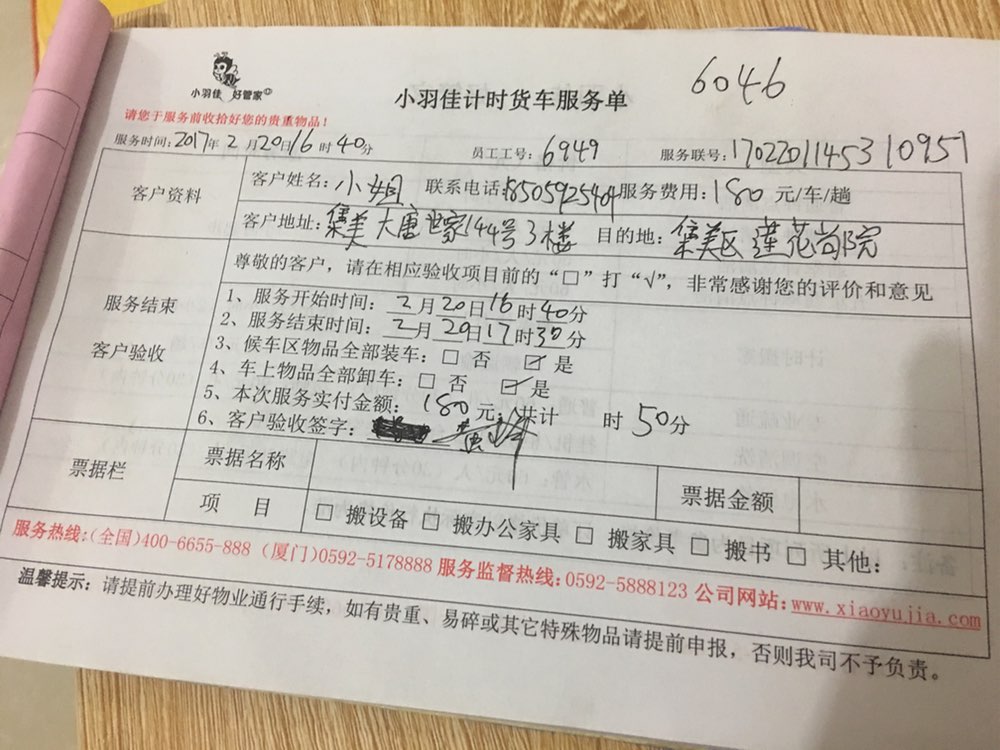 6046
小羽佳 好管家
小羽佳计时货车服务单
请您于服务前收拾好您的贵重物品！
服务时间：2017年2月20日16时40分 员工工号：6949 服务联号：170220114531 0957
客户资料 客户姓名：小姐 联系电话：18505925404 服务费用：180元/车/趟
客户地址：集美大唐世家144号3楼 目的地：集美区莲花尚院
服务结束 客户验收
尊敬的客户，请在相应验收项目前的“□”打“√”，非常感谢您的评价和意见
1、服务开始时间：2月20日16时40分
2、服务结束时间：2月20日17时30分
3、候车区物品全部装车：□ 否 ☑ 是
4、车上物品全部卸车：□ 否 ☑ 是
5、本次服务实付金额：180元；共计 时50分
6、客户验收签字：
票据栏 票据名称 票据金额
项 目 □ 搬设备 □ 搬办公家具 □ 搬家具 □ 搬书 □ 其他：
服务热线:(全国)400-6655-888 (厦门)0592-5178888 服务监督热线:0592-5888123 公司网站:www.xiaoyujia.com
温馨提示：请提前办理好物业通行手续，如有贵重、易碎或其它特殊物品请提前申报，否则我司不予负责。